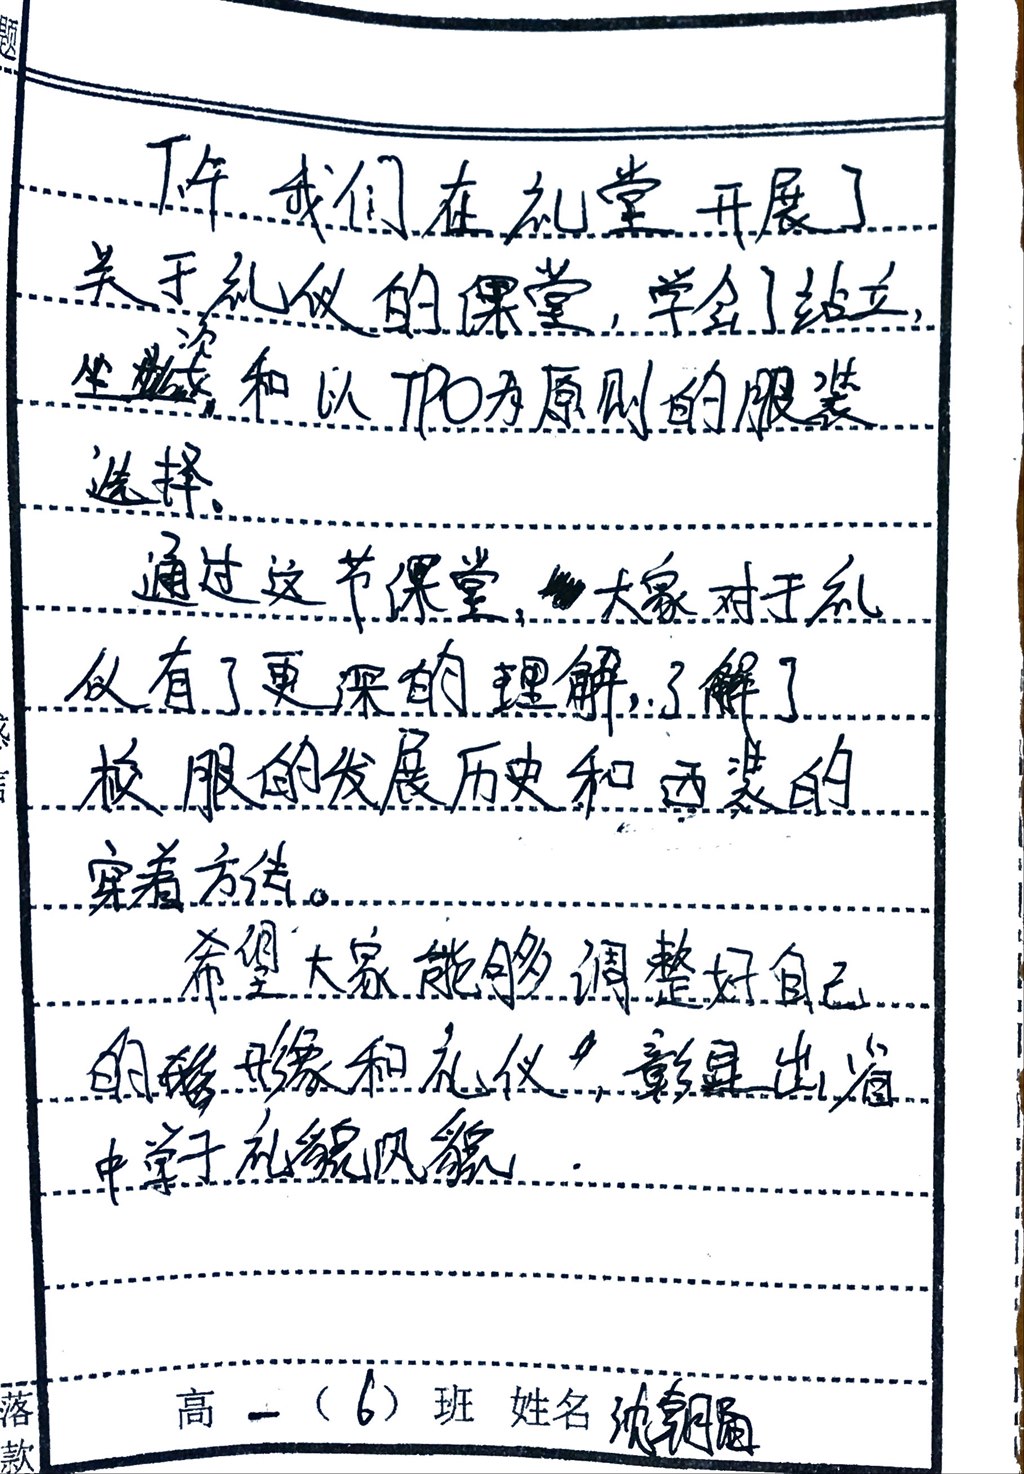 题
下午我们在礼堂开展了
关于礼仪的课堂,学会了站立,
坐姿,和以TPO为原则的服装
选择。
通过这节课堂,大家对于礼
仪有了更深的理解,了解了
校服的发展历史和西装的
穿着方法。
希望大家能够调整好自己
的形象和礼仪,彰显出省
中学子礼貌风貌.
落款
高一(6)班 姓名 沈朝